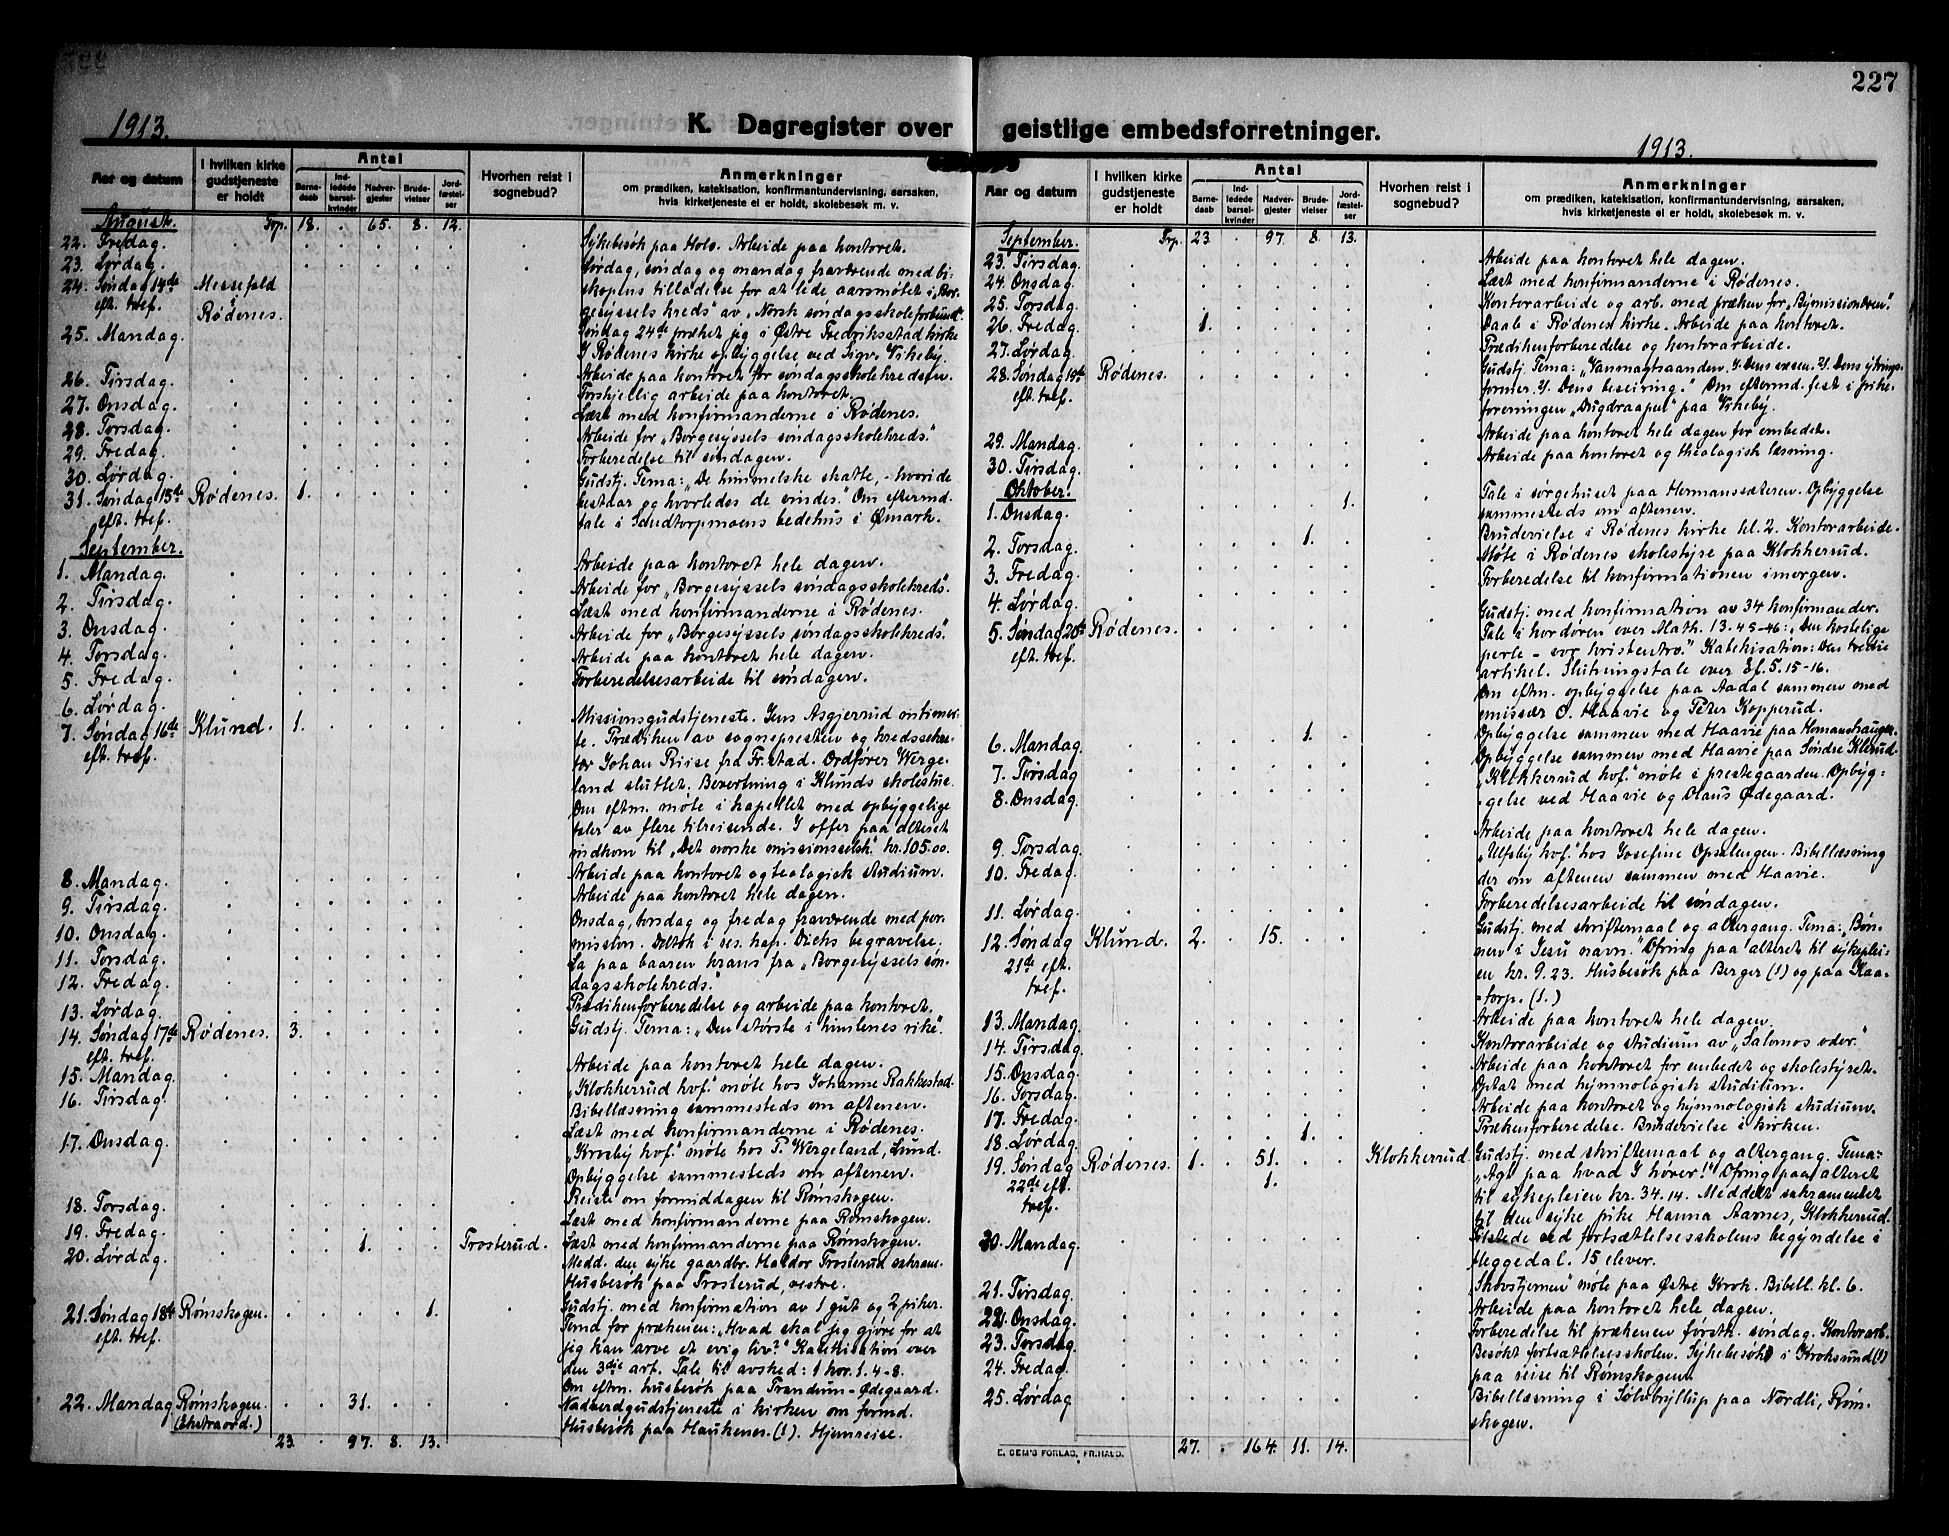 227
1913.
K. Dagregister over geistlige embedsforretninger.
1913.
Aar og datum
I hvilken kirke gudstjeneste er holdt
Antal
Barnedaab
Indledede barselkvinder
Nadvergjester
Brudevielser
Jordfæstelser
Hvorhen reist i sognebud?
Anmerkninger
om prædiken, katekisation, konfirmantundervisning, aarsaken, hvis kirketjeneste ei er holdt, skolebesøk m. v.
August. Trp. 18. . 65. 8. 12.
22. Fredag. Sykebesøk paa Holo. Arbeide paa kontoret.
23. Lørdag. Lørdag, søndag og mandag fraværende med bi-
24. Søndag 14de eft. tref. Messefald Rødenes.
skopens tilladelse for at lede aarsmøtet i „Bor-
gesyssels kreds" av „Norsk søndagsskoleforbund".
Søndag 24de præket jeg i Østre Fredriksstad kirke
25. Mandag. I Rødenes kirke opbyggelse ved Sigv. Vikeby.
26. Tirsdag. Arbeide paa kontoret for søndagsskolekredsen.
27. Onsdag. Forskjellig arbeide paa kontoret.
28. Torsdag. Læst med konfirmanderne i Rødenes.
29. Fredag. Arbeide for „Borgesyssels søndagsskolekreds."
30. Lørdag. Forberedelse til søndagen.
31. Søndag 15de eft. tref. Rødenes. 1. Gudstj. Tema: „De himmelske skatte, – hvori de
bestaar og hvorledes de vindes." Om efterm.
tale i Sandtorpmoens bedehus i Ømark.
September.
1. Mandag. Arbeide paa kontoret hele dagen.
2. Tirsdag. Arbeide for „Borgesyssels søndagsskolekreds."
3. Onsdag. Læst med konfirmanderne i Rødenes.
4. Torsdag. Arbeide for „Borgesyssels søndagsskolekreds."
5. Fredag. Arbeide paa kontoret hele dagen.
6. Lørdag. Forberedelsesarbeide til søndagen.
7. Søndag 16de eft. tref. Klund. 1. Missionsgudstjeneste. Jens Asgjerrud intioner-
te. Prædiken av sognepresten og kredssekre-
tær Johan Riise fra Fr.stad. Ordfører Werge-
land sluttet. Bevertning i Klunds skolestue.
Om eftm. møte i kapellet med opbyggelige
taler av flere tilreisende. I offer paa alteret
indkom til „Det norske missionsselsk." kr. 105.00.
8. Mandag. Arbeide paa kontoret og teologisk studium.
9. Tirsdag. Arbeide paa kontoret hele dagen.
10. Onsdag. Onsdag, torsdag og fredag fraværende med per-
11. Torsdag. mission. Deltok i res. kap. Dichs begravelse.
12. Fredag. La paa baaren krans fra „Borgesyssels søn-
dagsskolekreds."
13. Lørdag. Prædikenforberedelse og arbeide paa kontoret.
14. Søndag 17de eft. tref. Rødenes. 3. Gudstj. Tema: „Den største i himlenes rike".
15. Mandag. Arbeide paa kontoret hele dagen.
16. Tirsdag. „Klokkerrud kvf." møte hos Johanne Rakkestad.
Bibellæsning sammesteds om aftenen.
17. Onsdag. Læst med konfirmanderne i Rødenes.
„Krosby kvf." møte hos P. Wergeland, Lund.
Opbyggelse sammesteds om aftenen.
18. Torsdag. Reiste om formiddagen til Rømskogen.
Læst med konfirmanderne paa Rømskogen.
19. Fredag. Læst med konfirmanderne paa Rømskogen.
20. Lørdag. 1. Trosterud. Medd. den syke gaardbr. Haldor Trosterud sakram.
Husbesøk paa Trosterud, vestre.
21. Søndag 18de eft. tref. Rømskogen. 1. Gudstj. med konfirmation av 1 gut og 2 piker.
Tema for prækenen: „Hvad skal jeg gjøre for at
jeg kan arve et evig liv?" Katekisation over
den 3die art. Tale til avsked: 1 kor. 1. 4-8.
Om eftm. husbesøk paa Trandum-Ødegaard.
22. Mandag Rømskogen. (Ekstraord.) 31. Nadverdgudstjeneste i kirken om formd.
Husbesøk paa Haukenes. (1). Hjemreise.
23. . 97. 8. 13.
Aar og datum
I hvilken kirke gudstjeneste er holdt
Antal
Barnedaab
Indledede barselkvinder
Nadvergjester
Brudevielser
Jordfæstelser
Hvorhen reist i sognebud?
Anmerkninger
om prædiken, katekisation, konfirmantundervisning, aarsaken, hvis kirketjeneste ei er holdt, skolebesøk m. v.
September. Trp. 23. . 97. 8. 13.
23. Tirsdag. Arbeide paa kontoret hele dagen.
24. Onsdag. Læst med konfirmanderne i Rødenes.
25. Torsdag. Kontorarbeide og arb. med præken for „Bymissionæren".
26. Fredag. 1. Daab i Rødenes kirke. Arbeide paa kontoret.
27. Lørdag. Prædikenforberedelse og kontorarbeide.
28. Søndag 19de eft. tref. Rødenes. Gudstj. Tema: „Vanmagtsaanden. 1/. Dens væsen. 2/. Dens ytrings-
former. 3/. Dens beseiring." Om eftermd. fest i pike-
foreningen „Dugdraapen" paa Vikeby.
29. Mandag. Arbeide paa kontoret hele dagen for embedet.
30. Tirsdag. Arbeide paa kontoret og theologisk læsning.
Oktober.
1. Onsdag. 1. Tale i sørgehuset paa Hermanssæteren. Opbyggelse
sammesteds om aftenen.
2. Torsdag. 1. Brudevielse i Rødenes kirke kl. 2. Kontorarbeide.
3. Fredag. Møte i Rødenes skolestyre paa Klokkerrud.
4. Lørdag. Forberedelse til konfirmationen imorgen.
5. Søndag 20de eft. tref. Rødenes. Gudstj. med konfirmation av 34 konfirmander.
Tale i kordøren over Math. 13. 45-46: „Den kostelige
perle – vor kristentro." Katekisation: Den tredie
artikel. Slutningstale over Ef. 5. 15-16.
Om eftm. opbyggelse paa Aadal sammen med
emissær O. Haavie og Peter Kopperud.
6. Mandag. 1. Opbyggelse sammen med Haavie paa Homanshaugen.
7. Tirsdag Opbyggelse sammen med Haavie paa Søndre Klerud.
8. Onsdag. „Klokkerrud kvf." møte i prestegaarden. Opbyg-
gelse ved Haavie og Olaus Ødegaard.
9. Torsdag. Arbeide paa kontoret hele dagen.
10. Fredag. „Ulfsby kvf." hos Josefine Opsalengen. Bibellæsning
der om aftenen sammen med Haavie.
11. Lørdag. Forberedelsesarbeide til søndagen.
12. Søndag 21de eft. tref. Klund. 2. . 15. Gudstj. med skriftemaal og altergang. Tema: „Bøn-
nen i Jesu navn." Ofring paa alteret til sykeplei-
en kr. 9.23. Husbesøk paa Berger (1) og paa Kaa-
torp. (1.)
13. Mandag. Arbeide paa kontoret hele dagen.
14. Tirsdag. Kontorarbeide og studium av „Salomos oder."
15. Onsdag. Arbeide paa kontoret for embedet og skolestyret.
16. Torsdag. Optat med hymnologisk studium.
17. Fredag. Arbeide paa kontoret og hymnologisk studium.
18. Lørdag 1. Prækenforberedelse. Brudevielse i kirken.
19. Søndag 22de eft. tref. Rødenes. 1. . 51. 1. Klokkerrud Gudstj. med skriftemaal og altergang. Tema:
„Agt paa hvad I hører!" Ofring paa alteret
til sykepleien kr. 34.14. Meddelt sakramentet
til den syke pike Hanna Aarnes, Klokkerrud.
20. Mandag. Tilstede ved fortsættelsesskolens begyndelse i
Heggedal. 15 elever.
21. Tirsdag. „Skovstjernen" møte paa Østre Krok. Bibell. kl. 6.
22. Onsdag. Arbeide paa kontoret hele dagen.
23. Torsdag. Forberedelse til prækenen førstk. søndag. Kontorarb.
24. Fredag. Besøkt fortsættelsesskolen. Sykebesøk i Kroksund (1)
paa reise til Rømskogen.
25. Lørdag Bibellæsning i Sølvbryllup paa Nordli, Røm-
skogen.
27. . 164. 11. 14.
E. SEM'S FORLAG, FR.HALD.